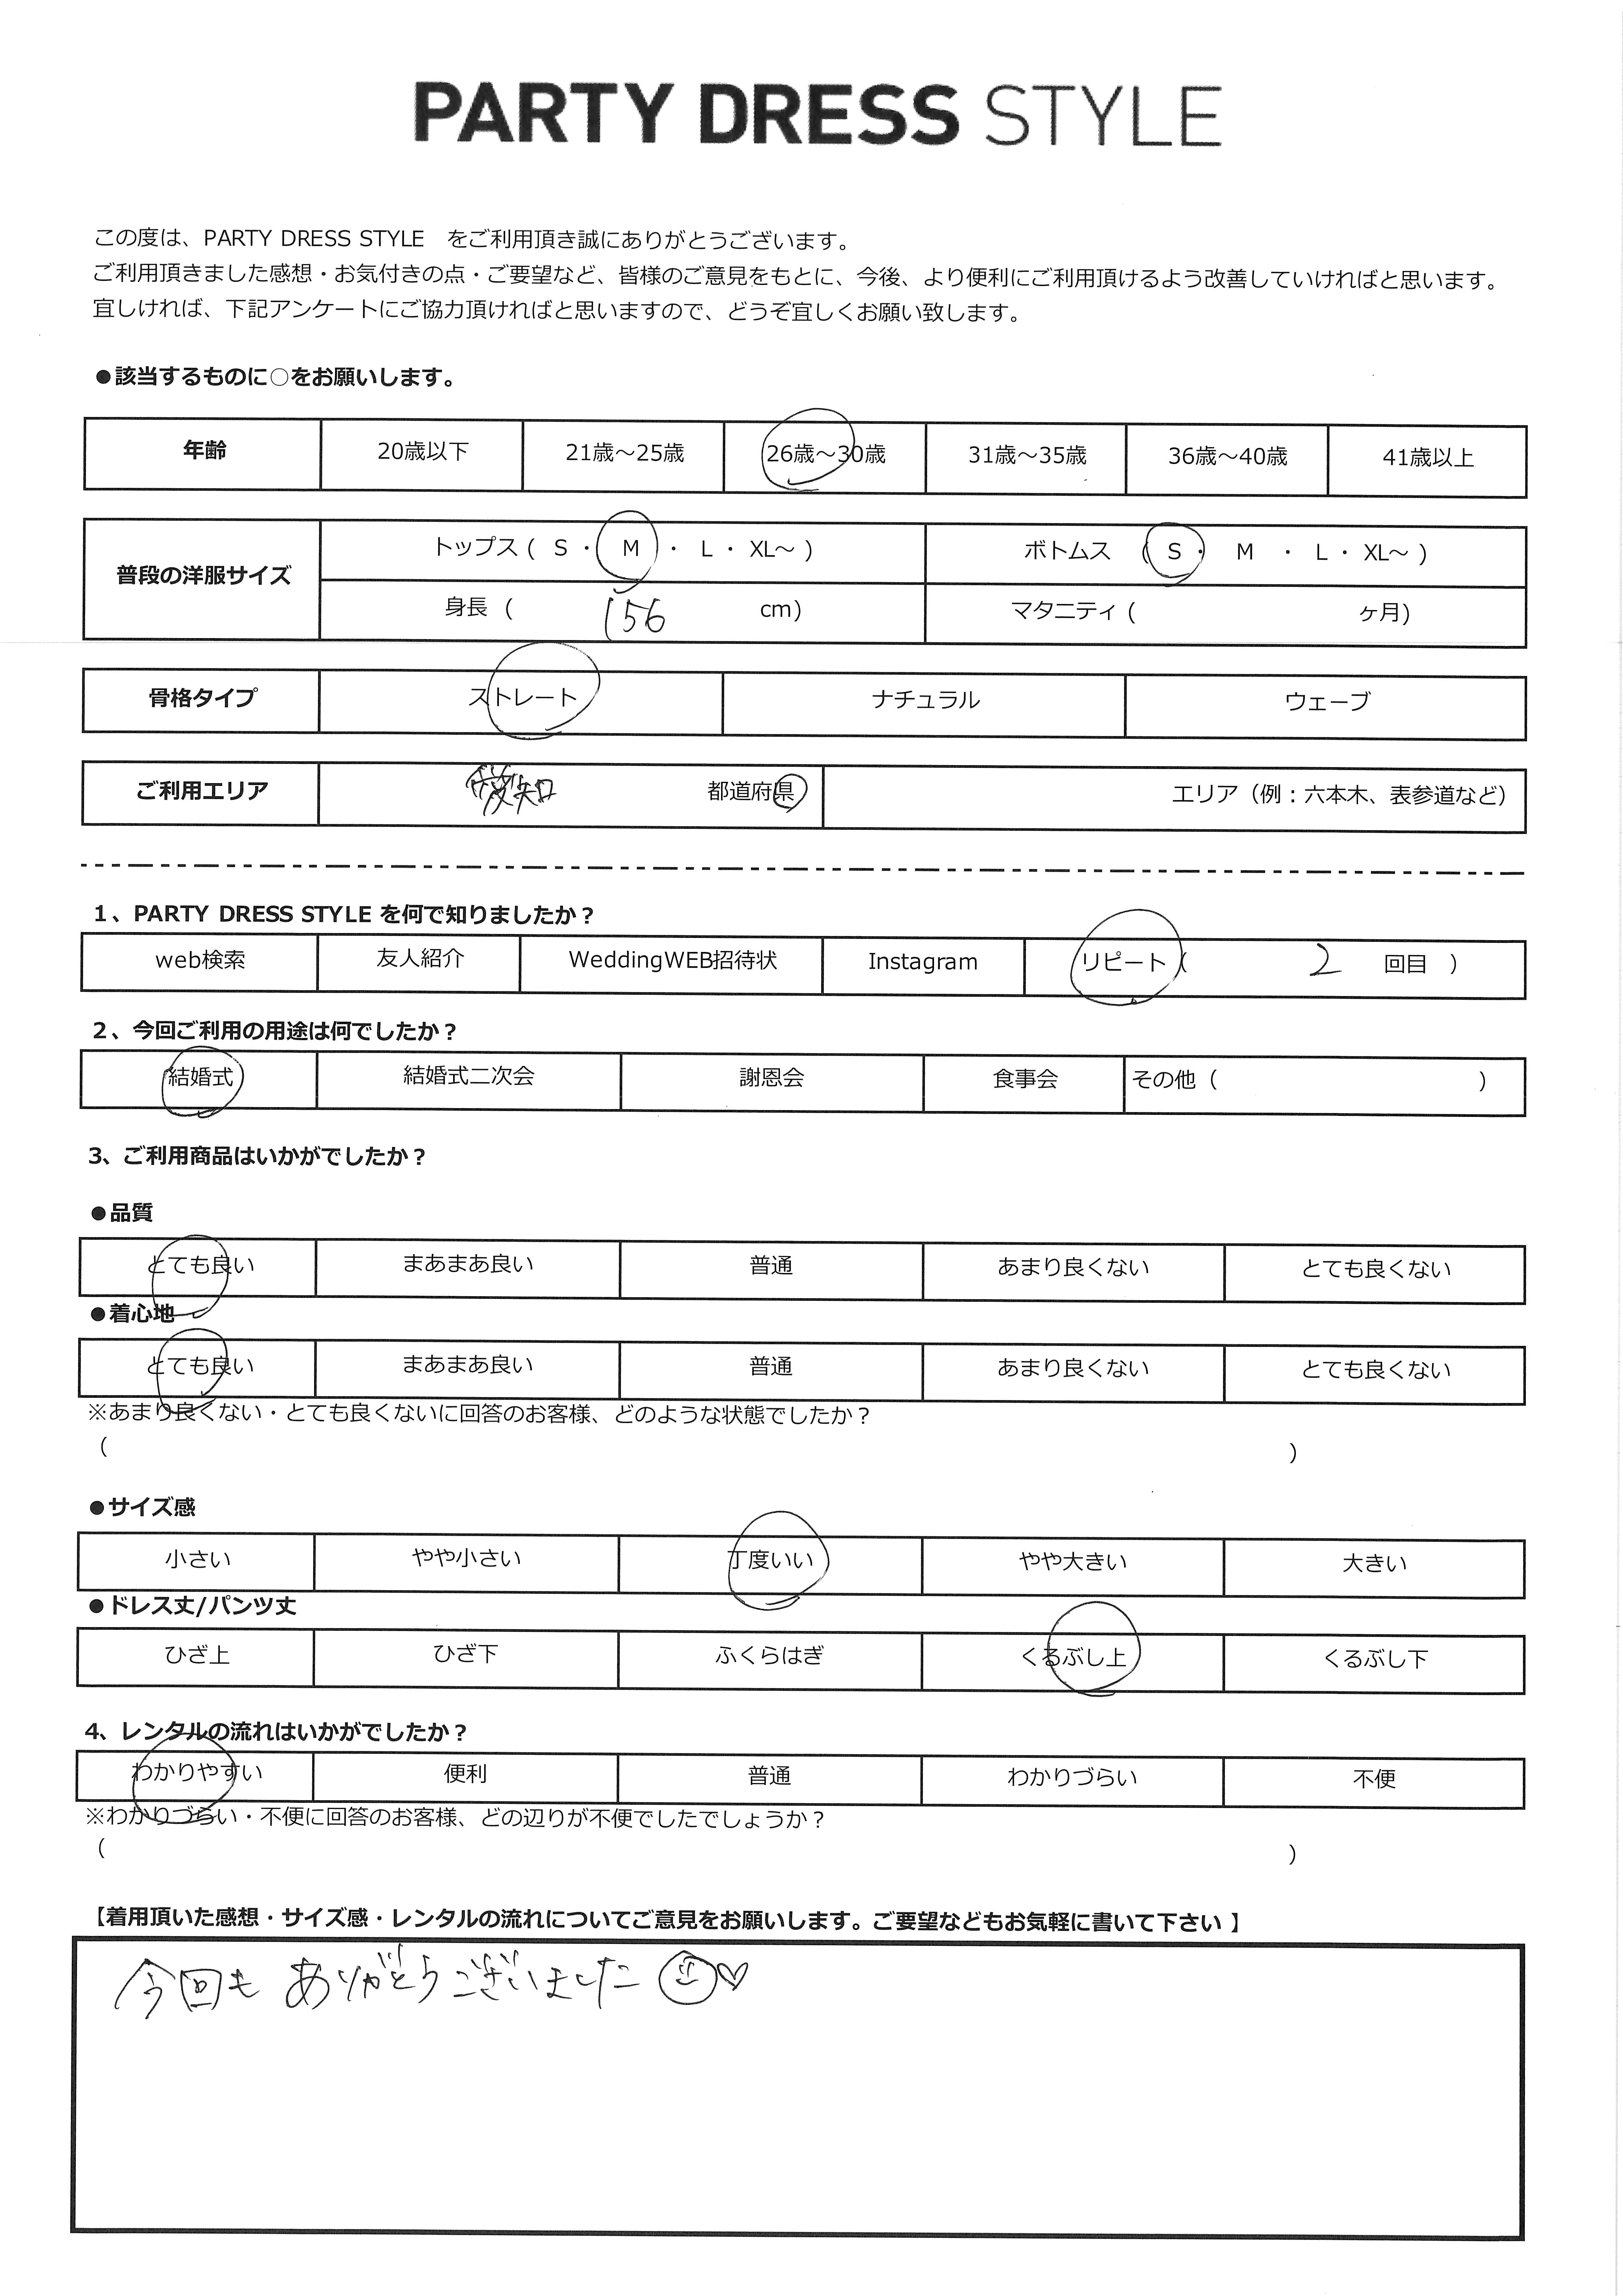 PARTY DRESS STYLE
この度は、PARTY DRESS STYLE　をご利用頂き誠にありがとうございます。
ご利用頂きました感想・お気付きの点・ご要望など、皆様のご意見をもとに、今後、より便利にご利用頂けるよう改善していければと思います。
宜しければ、下記アンケートにご協力頂ければと思いますので、どうぞ宜しくお願い致します。
●該当するものに○をお願いします。
年齢 20歳以下 21歳～25歳 26歳～30歳 31歳～35歳 36歳～40歳 41歳以上
普段の洋服サイズ トップス ( S ・ M ・ L ・ XL～ ) ボトムス ( S ・ M ・ L ・ XL～ )
身長 ( 156 cm) マタニティ ( ヶ月)
骨格タイプ ストレート ナチュラル ウェーブ
ご利用エリア 愛知 都道府県 エリア（例：六本木、表参道など）
1、PARTY DRESS STYLE を何で知りましたか？
web検索 友人紹介 WeddingWEB招待状 Instagram リピート ( 2 回目 )
2、今回ご利用の用途は何でしたか？
結婚式 結婚式二次会 謝恩会 食事会 その他 ( )
3、ご利用商品はいかがでしたか？
●品質
とても良い まあまあ良い 普通 あまり良くない とても良くない
●着心地
とても良い まあまあ良い 普通 あまり良くない とても良くない
※あまり良くない・とても良くないに回答のお客様、どのような状態でしたか？
( )
●サイズ感
小さい やや小さい 丁度いい やや大きい 大きい
●ドレス丈/パンツ丈
ひざ上 ひざ下 ふくらはぎ くるぶし上 くるぶし下
4、レンタルの流れはいかがでしたか？
わかりやすい 便利 普通 わかりづらい 不便
※わかりづらい・不便に回答のお客様、どの辺りが不便でしたでしょうか？
( )
【着用頂いた感想・サイズ感・レンタルの流れについてご意見をお願いします。ご要望などもお気軽に書いて下さい 】
今回も ありがとうございました ☺♡